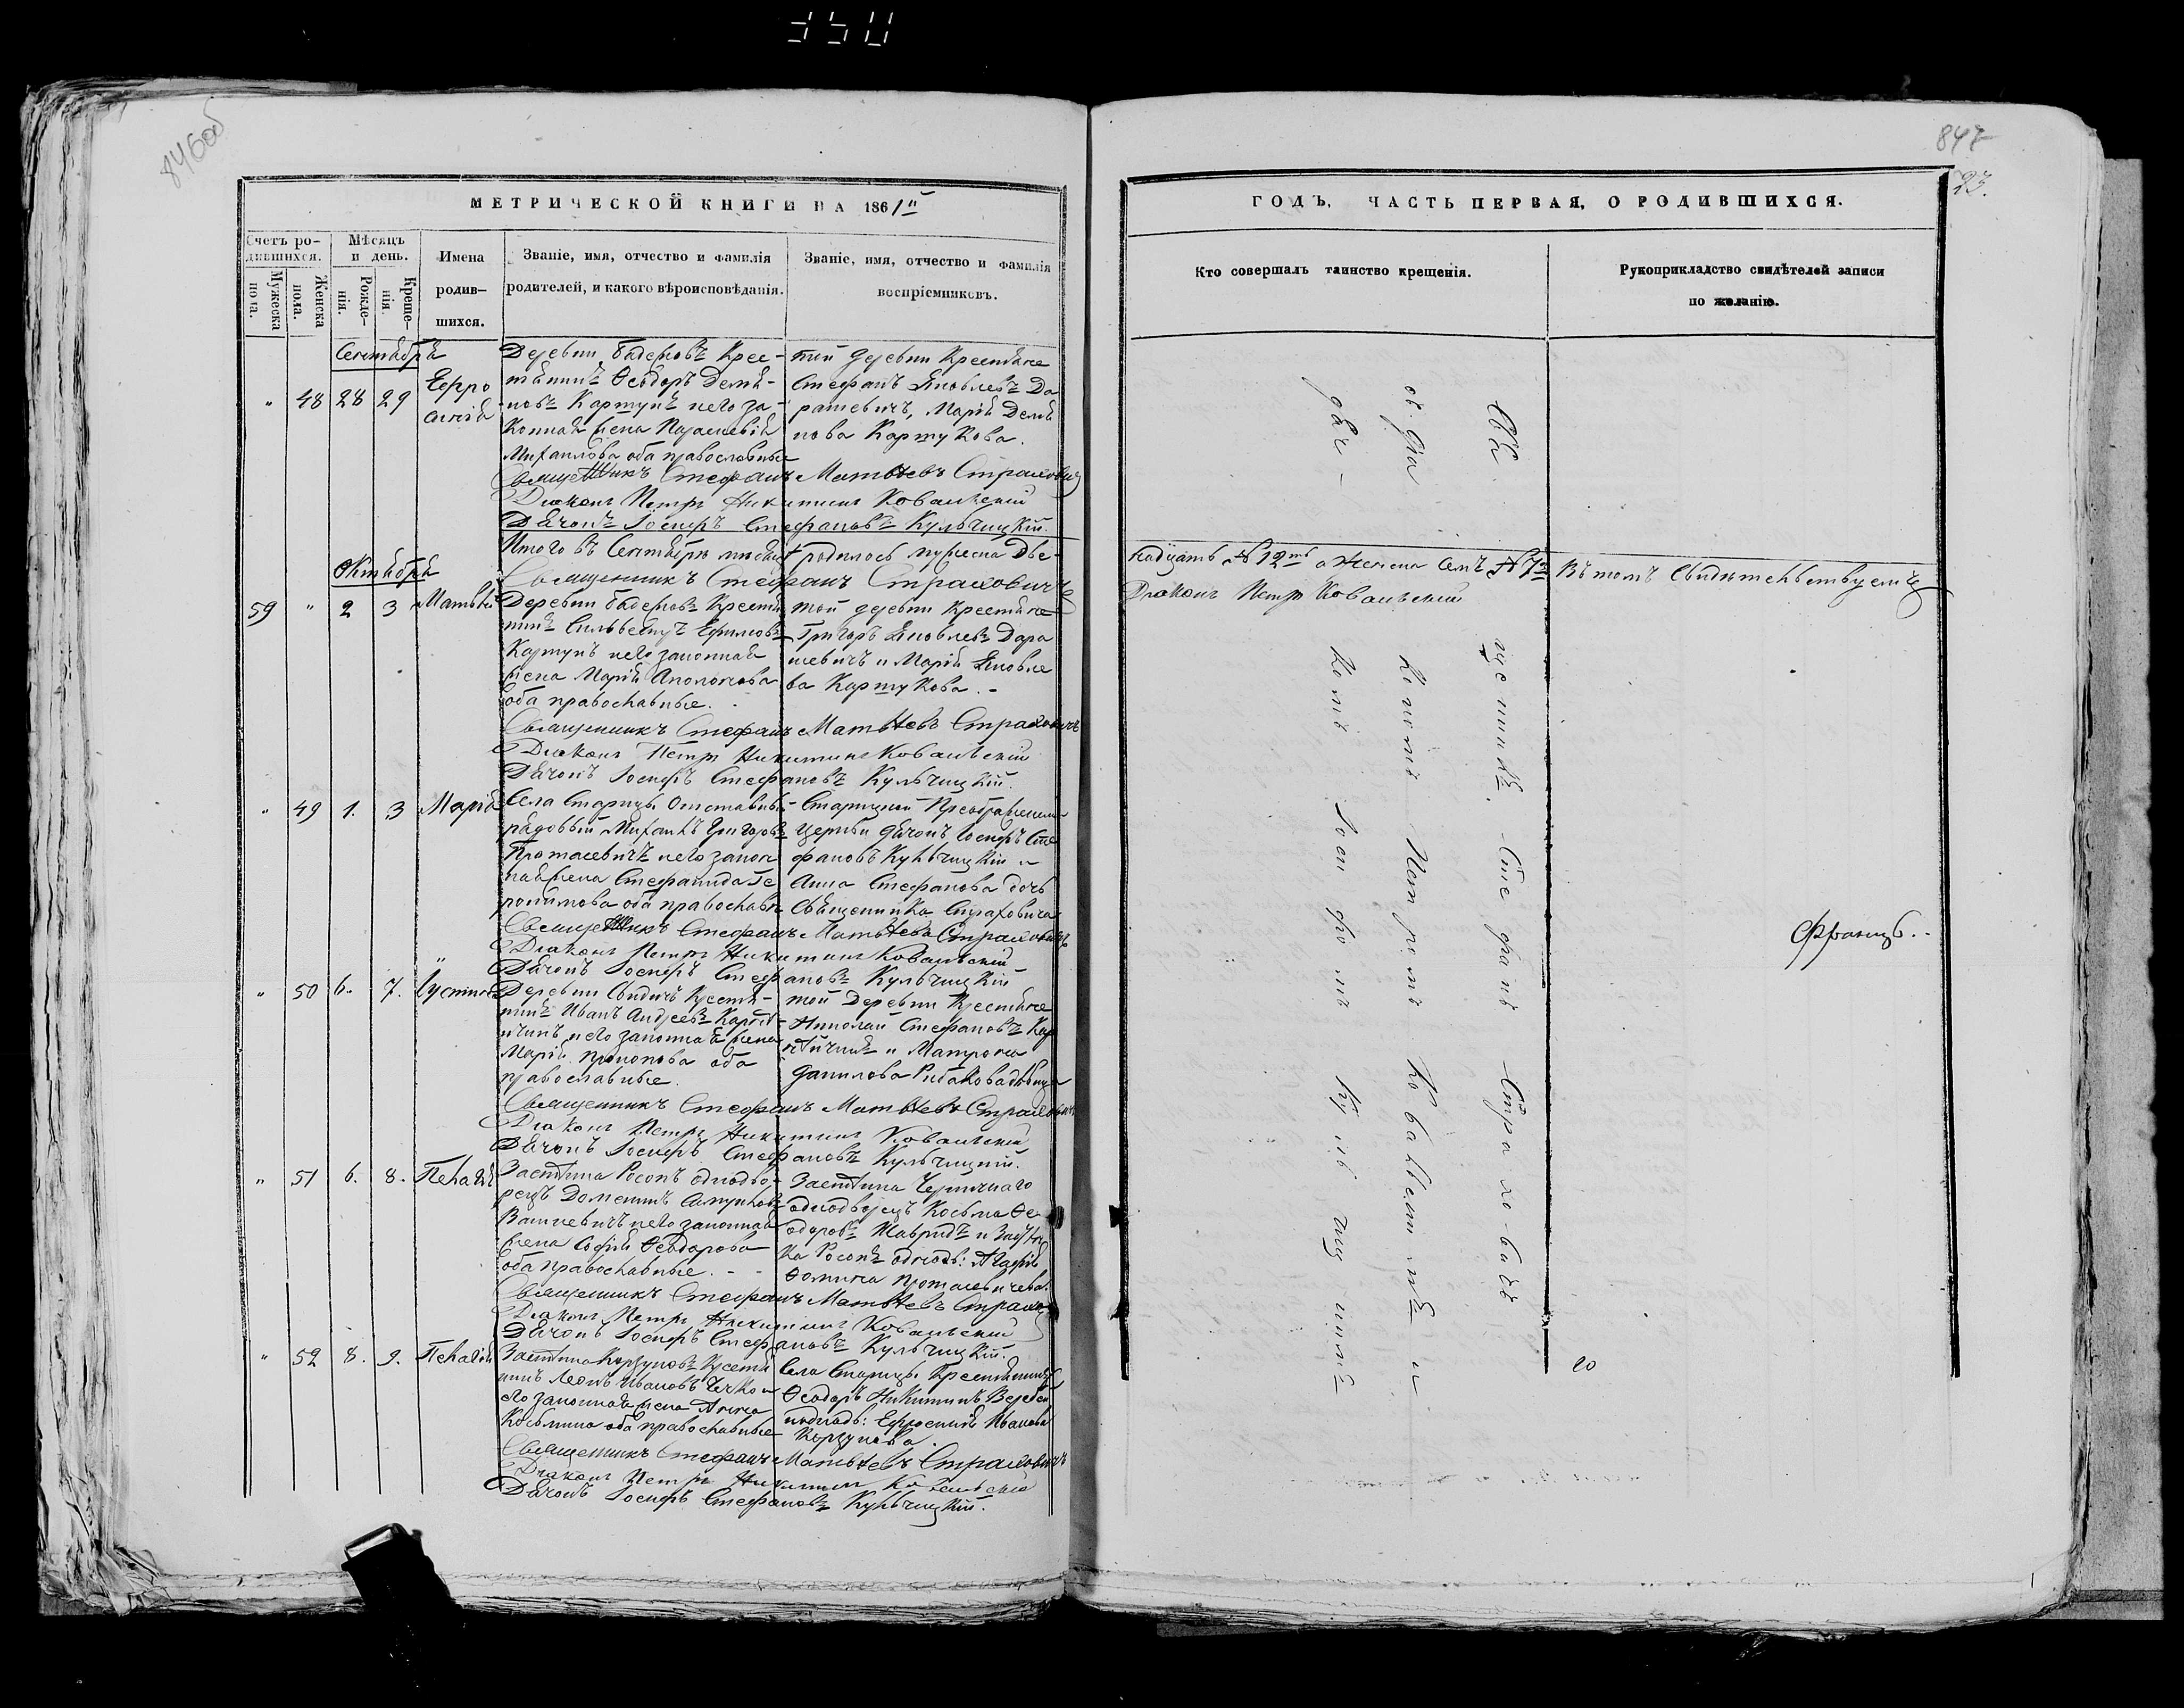 350
846об
847
23.
МЕТРИЧЕСКОЙ КНИГИ НА 1861й
ГОДЪ, ЧАСТЬ ПЕРВАЯ, О РОДИВШИХСЯ.
Счетъ ро-
дившихся.
Мужеска
пола.
Женска
пола.
Мѣсяцъ
и день.
Рожде-
нія.
Креще-
нія.
Имена
родив-
шихся.
Званіе, имя, отчество и фамилія
родителей, и какого вѣроисповѣданія.
Званіе, имя, отчество и фамилія
воспріемниковъ.
Кто совершалъ таинство крещенія.
Рукоприкладство свидѣтелей записи
по желанію.
Сентября
" 48 28 29
Деревни Крес-
тянинъ Ѳеодоръ Демя-
новъ Картунъ и его за-
конная жена
Михайлова оба православные
той деревни Крестьяне
Стефанъ Яковлевъ До
рашевичъ, Марія Демя
нова Картукова.
Священникъ Стефанъ Матвѣевъ Страховичъ
Діаконъ Петръ Никитинъ Ковальскій
Дьячокъ Іосифъ Стефановъ Кульчицкій.
Итого въ Сентябрѣ мѣсяцѣ родилось мужеска Две-
надцать № 12ть а женска семь № 7ь Въ томъ свидѣтельствуемъ
Священникъ Стефанъ Страховичъ
Діаконъ Петръ Ковальскій
Октября
59 " 2 3 Матвѣй
Деревни Крестя
нинъ Сильвестръ Ефимовъ
Картунъ и его законная
жена Марія
оба православные.
той деревни Крестьяне
Григоръ Яковлевъ Дора
шевичъ и Марія Яковле
ва Картукова.-
Священникъ Стефанъ Матвѣевъ Страховичъ
Діаконъ Петръ Никитинъ Ковальскій
Дьячокъ Іосифъ Стефановъ Кульчицкій.
" 49 1. 3 Марія
Села Старицы Отставный
рядовый Михаилъ Григорьевъ
Протасевичъ и его закон
ная жена Стефанида Ге
ронимова оба православн
Старицкой Преображенской
Церкви дьячокъ Іосифъ Сте
фановъ Кульчицкій и
Анна Стефанова дочь
Священника Страховича
Священникъ Стефанъ Матвѣевъ Страховичъ
Діаконъ Петръ Никитинъ Ковальскій
Дьячокъ Іосифъ Стефановъ Кульчицкій
" 50 6. 7. Іустина
Деревни Крестя-
нинъ Иванъ Андреевъ
и его законная жена
Марія Прокопова оба
православные.
той Деревни Крестьяне
Николай Стефановъ
и Матрона
Данилова
Священникъ Стефанъ Матвѣевъ Страховичъ
Діаконъ Петръ Никитинъ Ковальскій
Дьячокъ Іосифъ Стефановъ Кульчицкій.
" 51 6. 8. Пелагія
Застѣнка Росохъ однодво-
рецъ
и его законная
жена Софія Ѳеодорова
оба православные.
Застѣнка
однодворецъ Косьма Ѳе
одоровъ и Застѣн
ка Росохъ однодв:
Ѳомина Протасевичева.
Священникъ Стефанъ Матвѣевъ Страхов
Діаконъ Петръ Никитинъ Ковальскій
Дьячокъ Іосифъ Стефановъ Кульчицкій.
" 52 8. 9. Пелагія
Застѣнка Корзуновъ Крестя
нинъ Леонъ Ивановъ
его законная жена Анна
Косьмина оба православные
Села Старицы Крестьянинъ
Ѳеодоръ Никитинъ
однодв: Ефросинія Иванова
Корзунова.
Священникъ Стефанъ Матвѣевъ Страховичъ
Діаконъ Петръ Никитинъ Ковальскій
Дьячокъ Іосифъ Стефановъ Кульчицкій.
Свя
съ Діа
дьяч-
щенникъ. Стефанъ Страховичъ
кономъ Петромъ Ковальскимъ и
комъ Іосифомъ Кульчицкимъ